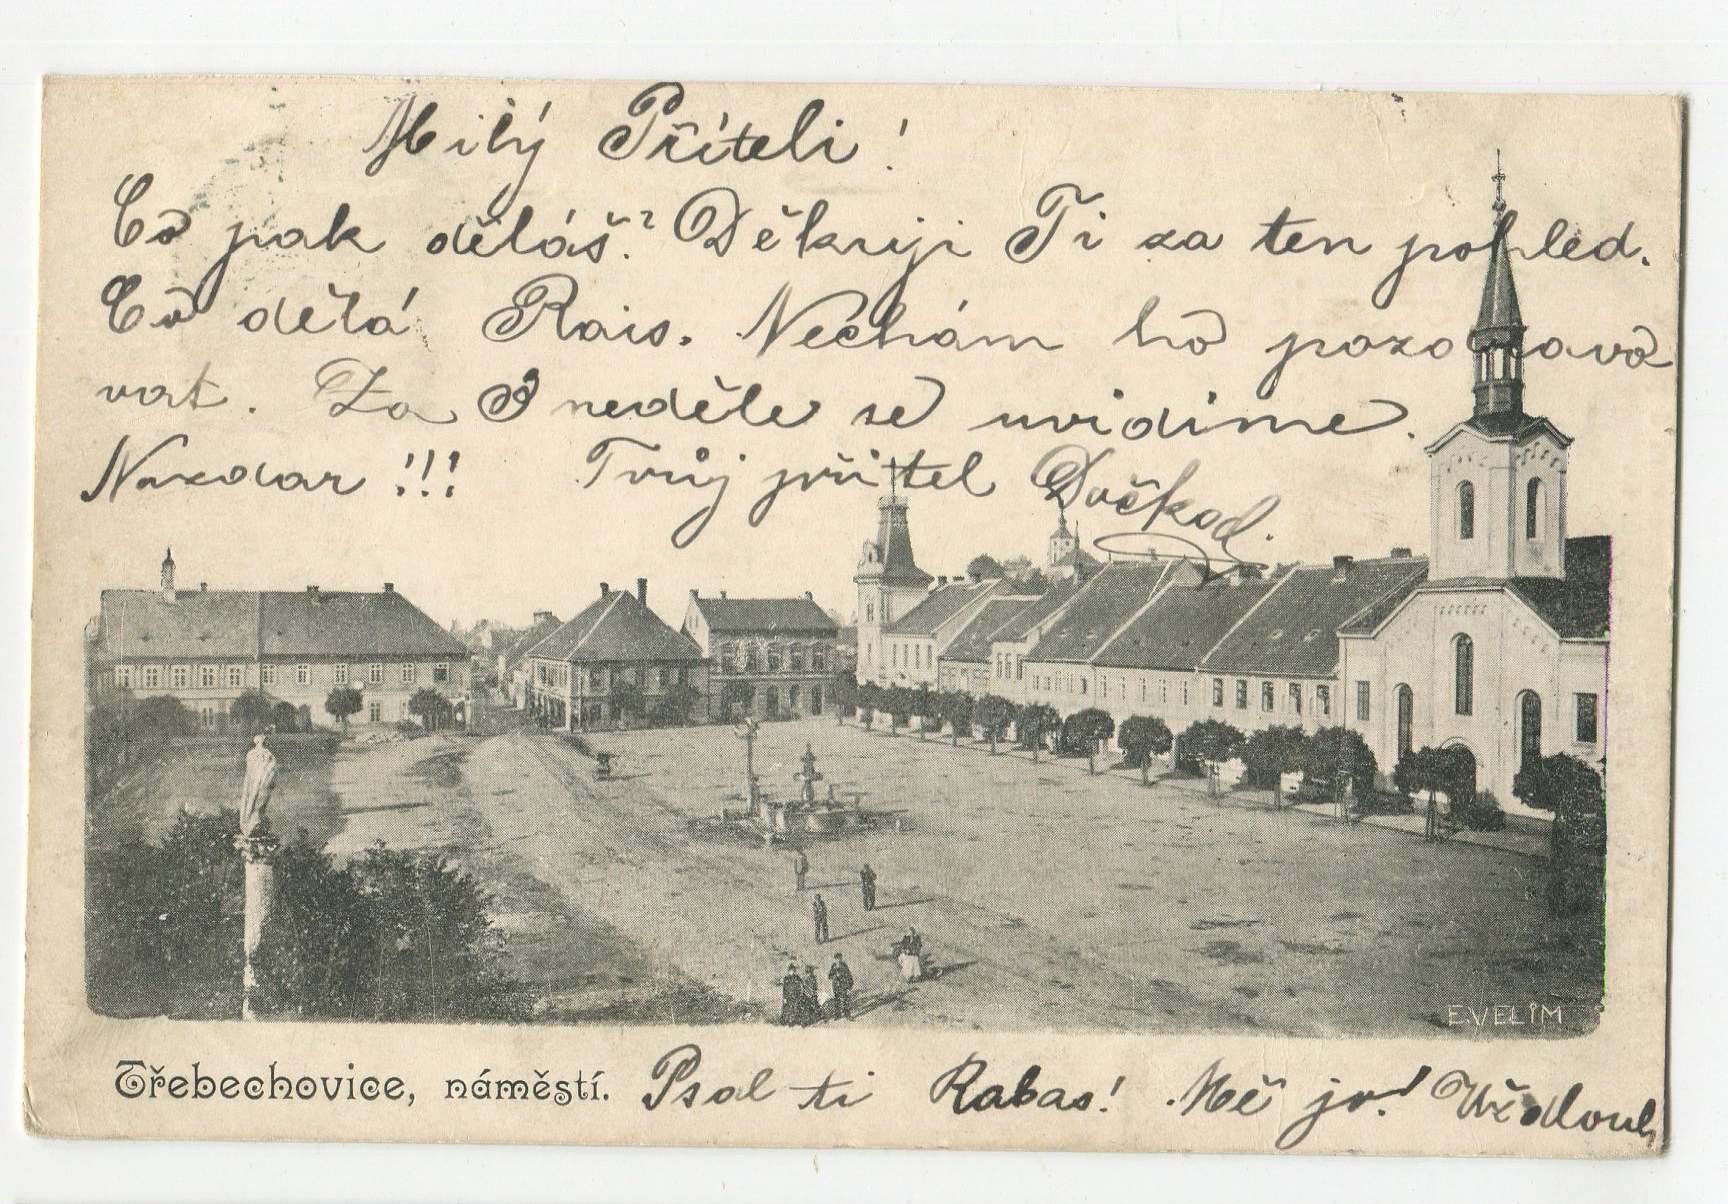 Milý Příteli!
Co pak děláš? Děkuji Ti za ten pohled.
Co dělá Rais. Nechám ho pozdravo
vat. Za 8 neděle se uvidime.
Nazdar!!! Tvůj přitel Dočkal.
E.VELIM
Třebechovice, náměstí. Psal ti Rabas! Mě jo! Už dlouh